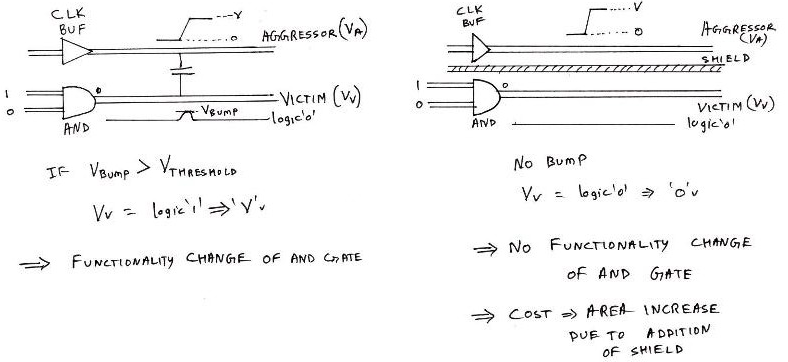 CLK
BUF
V
0
AGGRESSOR (VA)
1
0
0
AND
VICTIM (VV)
VBUMP
logic'0'
IF VBUMP > VTHRESHOLD
VV = logic'1' ⇒ 'V'v
⇒ FUNCTIONALITY CHANGE OF AND GATE
CLK
BUF
V
0
AGGRESSOR
(VA)
SHIELD
1
0
0
AND
VICTIM (VV)
logic'0'
NO BUMP
VV = logic'0' ⇒ '0'v
⇒ NO FUNCTIONALITY CHANGE
OF AND GATE
⇒ COST ⇒ AREA INCREASE
DUE TO ADDITION
OF SHIELD